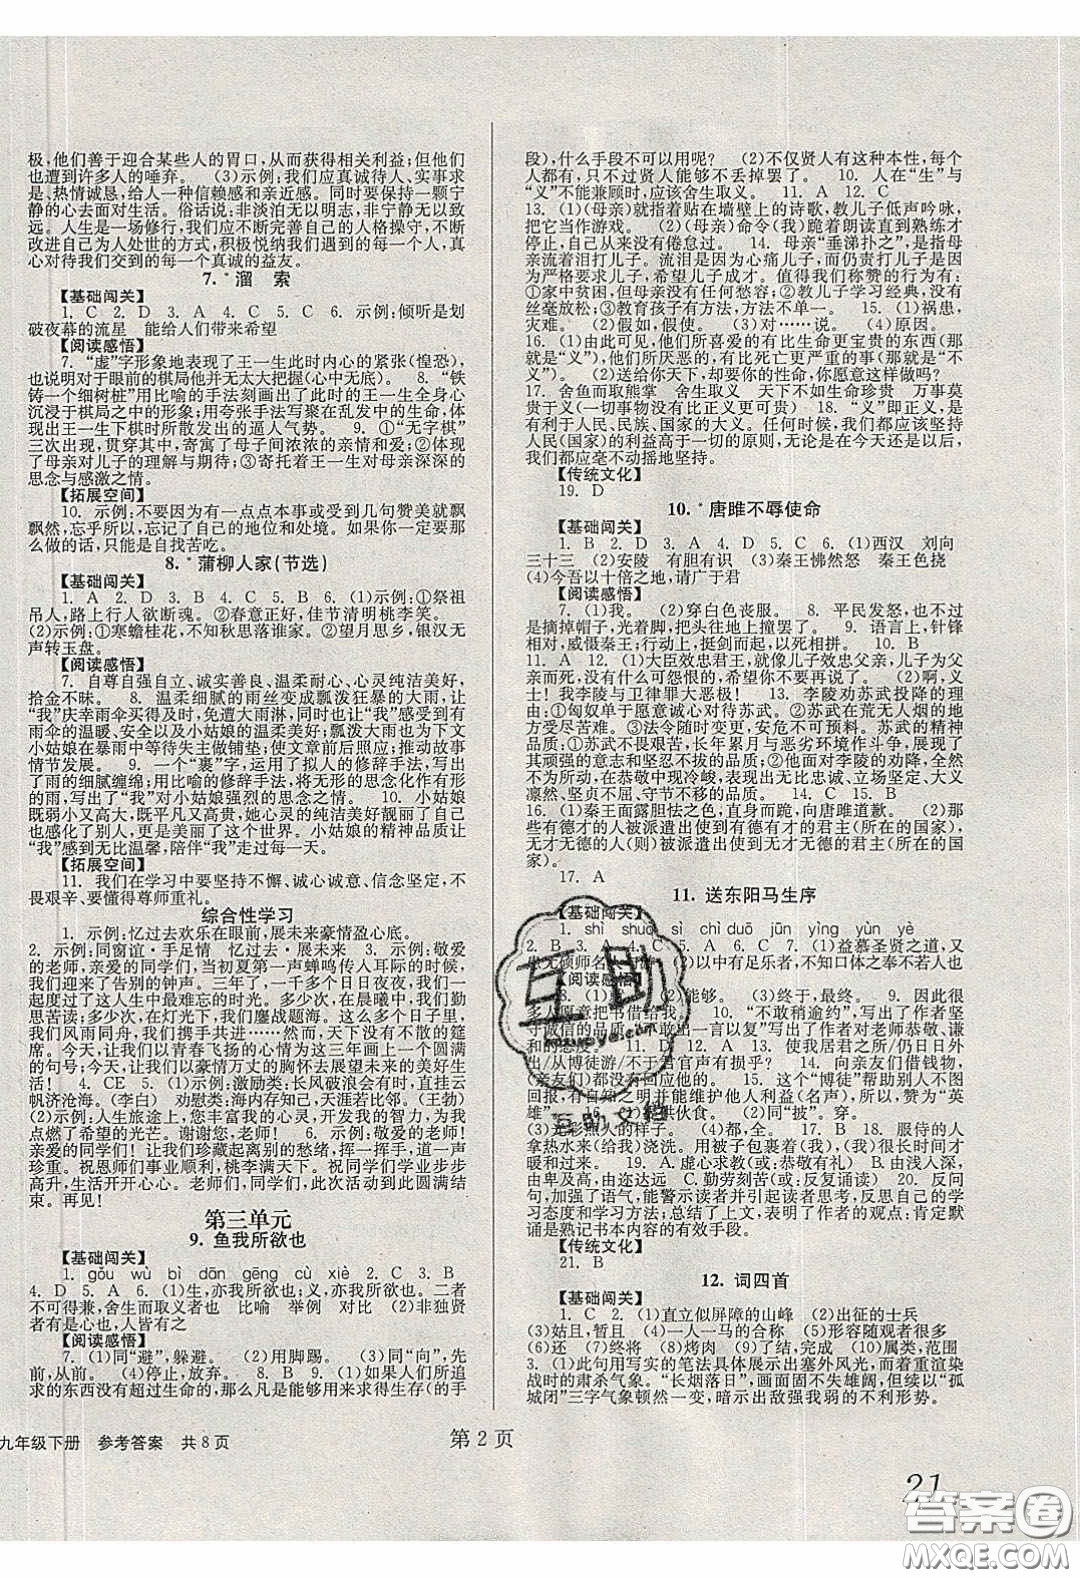 极,他们善于迎合某些人的胃口,从而获得相关利益;但他们
也遭到许多人的唾弃。　(3)示例:我们应真诚待人、实事求
是、热情诚恳,给人一种信赖感和亲近感。同时要保持一颗宁
静的心去面对生活。俗话说:非淡泊无以明志,非宁静无以致
远。人生是一场修行,我们应不断完善自己的人格操守,不断
改进自己为人处世的方式,积极悦纳我们遇到的每一个人,真
诚对待我们交到的每一个真诚的益友。
7.*溜　索
【基础闯关】
1. C　2. D　3. A　4. C　5. C　6. 示例:倾听是划
破夜幕的流星　能给人们带来希望
【阅读感悟】
7. “虚”字形象地表现了王一生此时内心的紧张(惶恐),
也说明对于眼前的棋局他并无太大把握(心中无底)。　8. “铁
铸一个细树桩”用比喻的手法刻画出了此时的王一生全身心
沉浸于棋局之中的形象;用夸张手法写聚在乱发中的生命,体
现出王一生下棋时所散发出的逼人气势。　9. ①“无字棋”
三次出现,贯穿其中,寄寓了母子间浓浓的亲情和爱;②体现
了母亲对儿子的理解与期待;③寄托着王一生对母亲深深的
思念与感激之情。
【拓展空间】
10. 示例:不要因为有一点点本事或受到几句赞美就飘
飘然,忘乎所以,忘记了自己的地位和处境。如果你一定要那
么做的话,只能是自我苦吃。
8.*蒲柳人家(节选)
【基础闯关】
1. A　2. D　3. B　4. C　5. B　6. (1)示例:①祭祖
吊人,路上行人欲断魂。②春意正好,佳节清明桃李笑。
(2)示例:①寒蟾桂花,不知秋思落谁家。②望月思乡,银汉无
声转玉盘。
【阅读感悟】
7. 自尊自强自立、诚实善良、温柔耐心、心灵纯洁美好、
拾金不昧。　8. 温柔细腻的雨丝变成瓢泼狂暴的大雨,让
“我”庆幸雨伞买得及时,免遭大雨淋,同时也让“我”感受到雨
伞的温暖、安全以及小姑娘的温柔美好;瓢泼大雨也为下文
小姑娘在暴雨中等待失主做铺垫;使文章前后呼应;推动故事
情节发展。　9. 一个“裹”字,运用了拟人的修辞手法,写出
了雨的细腻缠绵;用比喻的修辞手法,将无形的思念化作有形
的雨,写出了“我”对小姑娘强烈的思念之情。　10. 小姑娘
既弱小又高大,既平凡又高贵,她心灵的纯洁美好靓丽了自己,
也感化了别人,更丰美了这个世界。小姑娘的精神品质让
“我”感到无比温馨,陪伴“我”走过每一天。
【拓展空间】
11. 我们在学习中要坚持不懈、诚心诚意、信念坚定,不
畏艰辛、要懂得尊师重礼。
综合性学习
1. 示例:忆过去欢乐在眼前,展未来豪情盈心底。
2. 示例:同窗谊·手足情　忆过去——展未来　3. 示例:敬爱
的老师,亲爱的同学们,当夏日第一声蝉鸣传入耳际的时候,
我们迎来了告别的钟声。三年了,一千多个日日夜夜,我们
共同度过了这人生中最难忘的时光。多少次,在晨曦中,我们勤
思苦读;多少次,在灯光下,我们鏖战题海。这么多个日子里,
我们风雨同舟,我们携手共进……天下没有不散的筵
席。今天,就让我们以青春飞扬的心情为这三年画上一个圆满
的句号,就让我们以豪情万丈的胸怀去展望未来的美好
生活!　4. CE　5. (1)示例:激励类:长风破浪会有时,直挂云
帆济沧海。(李白)　劝慰类:海内存知己,天涯若比邻。(王勃)
(2)示例:人生旅途上,您用爱心开发我的智力,努力为我
点燃了希望的光芒。谢谢您,老师!　6. 示例:敬爱的老师、
亲爱的同学们! 让我们珍藏起离别的愁绪,挥一挥手,道一声
珍重。祝恩师们事业顺利,桃李满天下。祝同学们学业步步高
升,生活开开心心。老师们,同学们,此次活动到此
再见!
第三单元
9. 鱼我所欲也
【基础闯关】
1. gǒu　wù　bì　dān　gēng　cù　xiè　2. C　3. B
4. D　5. A　6. (1)生,亦我所欲也;义,亦我所欲也。二者
不可得兼,舍生而取义者也　比喻　举例　对比　(2)非独贤
者有是心也,人皆有之
【阅读感悟】
7. (1)同“避”,躲避。　(2)用脚踢。　(3)同“向”,先前,
从前。　(4)停止,放弃。　8. B　9. (1)如果人们所追
求的东西没有超过生命的,那么凡是能够用来求得生存(的手
段),什么手段不可以用呢?　(2)不仅贤人有这种本性,每个人
都有,只不过贤人能够不丢掉罢了。　10. 人在“生”与
“义”不能兼顾时,应该舍生取义。　11. A　12. C
13. (1)(母亲)就拿贴在墙壁上的诗歌,教儿子低声吟咏,
把它当作游戏。　(2)(母亲)命令(我)跪着朗读直到熟练才
停止,自己一天之内从来不休息。　14. 母亲“垂涕扑之”,是
爱和严的体现。流泪是因为心痛儿子,而仍责打儿子是因
为严格要求孩子,希望儿子成才。值得我们称赞的行为有:
①家中贫困,但母亲没有任何愁怨;②教儿子学习经典,没有
丝毫放松;③教育孩子有方法,方法不单一。　15. (1)祸患,
灾难。　(2)假如,假使。　(3)对……说。　(4)原因。
16. (1)由此可见,他们所喜爱的有比生命更宝贵的东西(那
就是“义”);他们所厌恶的,有比死亡更严重的事(那就是“不
义”)。　(2)送给你天下,却要你的性命,你愿意这样做吗?
17. 舍鱼而取熊掌　舍生取义　天下不如生命珍贵　万事莫
贵于义(一切事物没有比正义更可贵)　18. “义”即正义,是
有利于人民、民族、国家的大义。任何时候,我们都应坚持
人民(国家)的利益高于一切的原则,无论是在今天还是以后,
我们都应毫不动摇地坚持。
【传统文化】
19. D
10.*唐雎不辱使命
【基础闯关】
1. B　2. D　3. A　4. D　5. C　6. (1)西汉　刘向
三十三　(2)安陵　有胆有识　(3)秦王怫然怒　秦王色挠
(4)今吾以十倍之地,请广于君
【阅读感悟】
7. (1)我。　(2)穿白色丧服。　8. 平民发怒,也不
过是摘掉帽子,光着脚,把头往地上撞罢了。　9. 语言上,针锋
相对,威慑秦王;行动上,挺剑而起,以死相拼。　10. B
11. A　12. (1)大臣效忠君王,就像儿子效忠父亲,儿子为父
亲而死,没有什么可怨恨的,希望你不要再说了!　(2)唉,义
士! 我李陵与卫律罪大恶极!　13. 李陵劝苏武投降的理
由:①匈奴单于愿意诚心对待苏武。②苏武在荒无人烟的地
方受尽苦难。③法令随时变更,安危不可预料。苏武的精神
品质:①苏武不畏艰苦,长年累月与恶劣环境作斗争,展现了
其顽强的意志和坚忍不拔的品质;②他面对李陵的劝降,全然
不为所动,在恭敬中现冷峻,表现出无比忠诚、立场坚定、大义
凛然、坚贞不屈、守节不移的品质。　14. C　15. B
16. (1)秦王面露胆怯之色,直身而跪,向唐雎道歉。　(2)那
些有德才的人被派遣出使到有德有才的君主(所在的国家),
无才无德的人(则)被派遣出使到无才无德的君主(所在的国
家)。　17. A
11. 送东阳马生序
【基础闯关】
1. shì　shuò　sì　chì duō　jūn　yìng　yùn　yè
2. B　3. A　4. C　5. A　6. C　7. (1)益慕圣贤之道,又
患无硕师名人与游　(2)以中有足乐者,不知口体之奉不若人也
【阅读感悟】
8. (1)跑。　(2)能够。　(3)等到,最终。　9. 因此很
多人愿意把书借给我。　10. “不敢稍逾约”,写出了作者坚
守诚信的品质,“未敢出一言以复”写出了作者对老师恭敬、谦
和的态度。　11. D　12. A　13. 使我居君之所/仍日日外
出/从博徒游/不于吴官声有损乎?　14. 向亲友们借钱物,
(亲友们)都没有很好地答应他。　15. 这个“博徒”帮助别人不图
回报,有自知之明并能维护他人利益(名声),所以称赞他为“英
雄”。　16. (1)提供伙食。　(2)同“披”,穿。
(3)光彩照人的样子。　(4)都,全。　17. B　18. 服侍的人
拿热水来(给我)浇洗。用被子把(我)盖着,(我)很长时间才
暖和过来。　19. A. 虚心求教(或:恭敬有礼)　B. 由浅入深,
由卑及高,由近达远　C. 勤劳刻苦(或:反复诵读)　20. 反问
句,加强了语气,能警示读者并引导读者思考,表明了自己的学
习态度和学习方法;总结了上文,表明了作者的观点:肯定默
诵是熟记书本内容的有效手段。
【传统文化】
21. B
12. 词四首
【基础闯关】
1. C　2. (1)直立似屏障的山峰　(2)出征的士兵
(3)姑且,暂且　(4)一人一马的合称　(5)形容随观者众多
(6)还　(7)终将　(8)烤肉　(9)了结,完成　(10)属类,范围
3. (1)此句用写实的笔法具体展示出塞外风光,而着重渲染
战时的肃杀气象。“长烟落日”,画面固不失雄阔,但续以“孤
城闭”三字气象顿然一变,暗示出敌强我弱的不利形势。
九年级下册　参考答案　共8页
第 2 页
21
互助
互助文档
答案圈
MXQE.COM